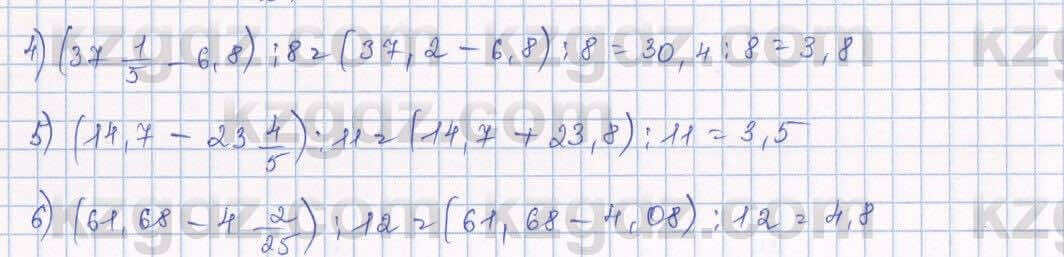 4) (37 1/5 - 6,8) : 8 = (37,2 - 6,8) : 8 = 30,4 : 8 = 3,8
5) (14,7 - 23 4/5) : 11 = (14,7 + 23,8) : 11 = 3,5
6) (61,68 - 4 2/25) : 12 = (61,68 - 4,08) : 12 = 4,8
kzgdz.com